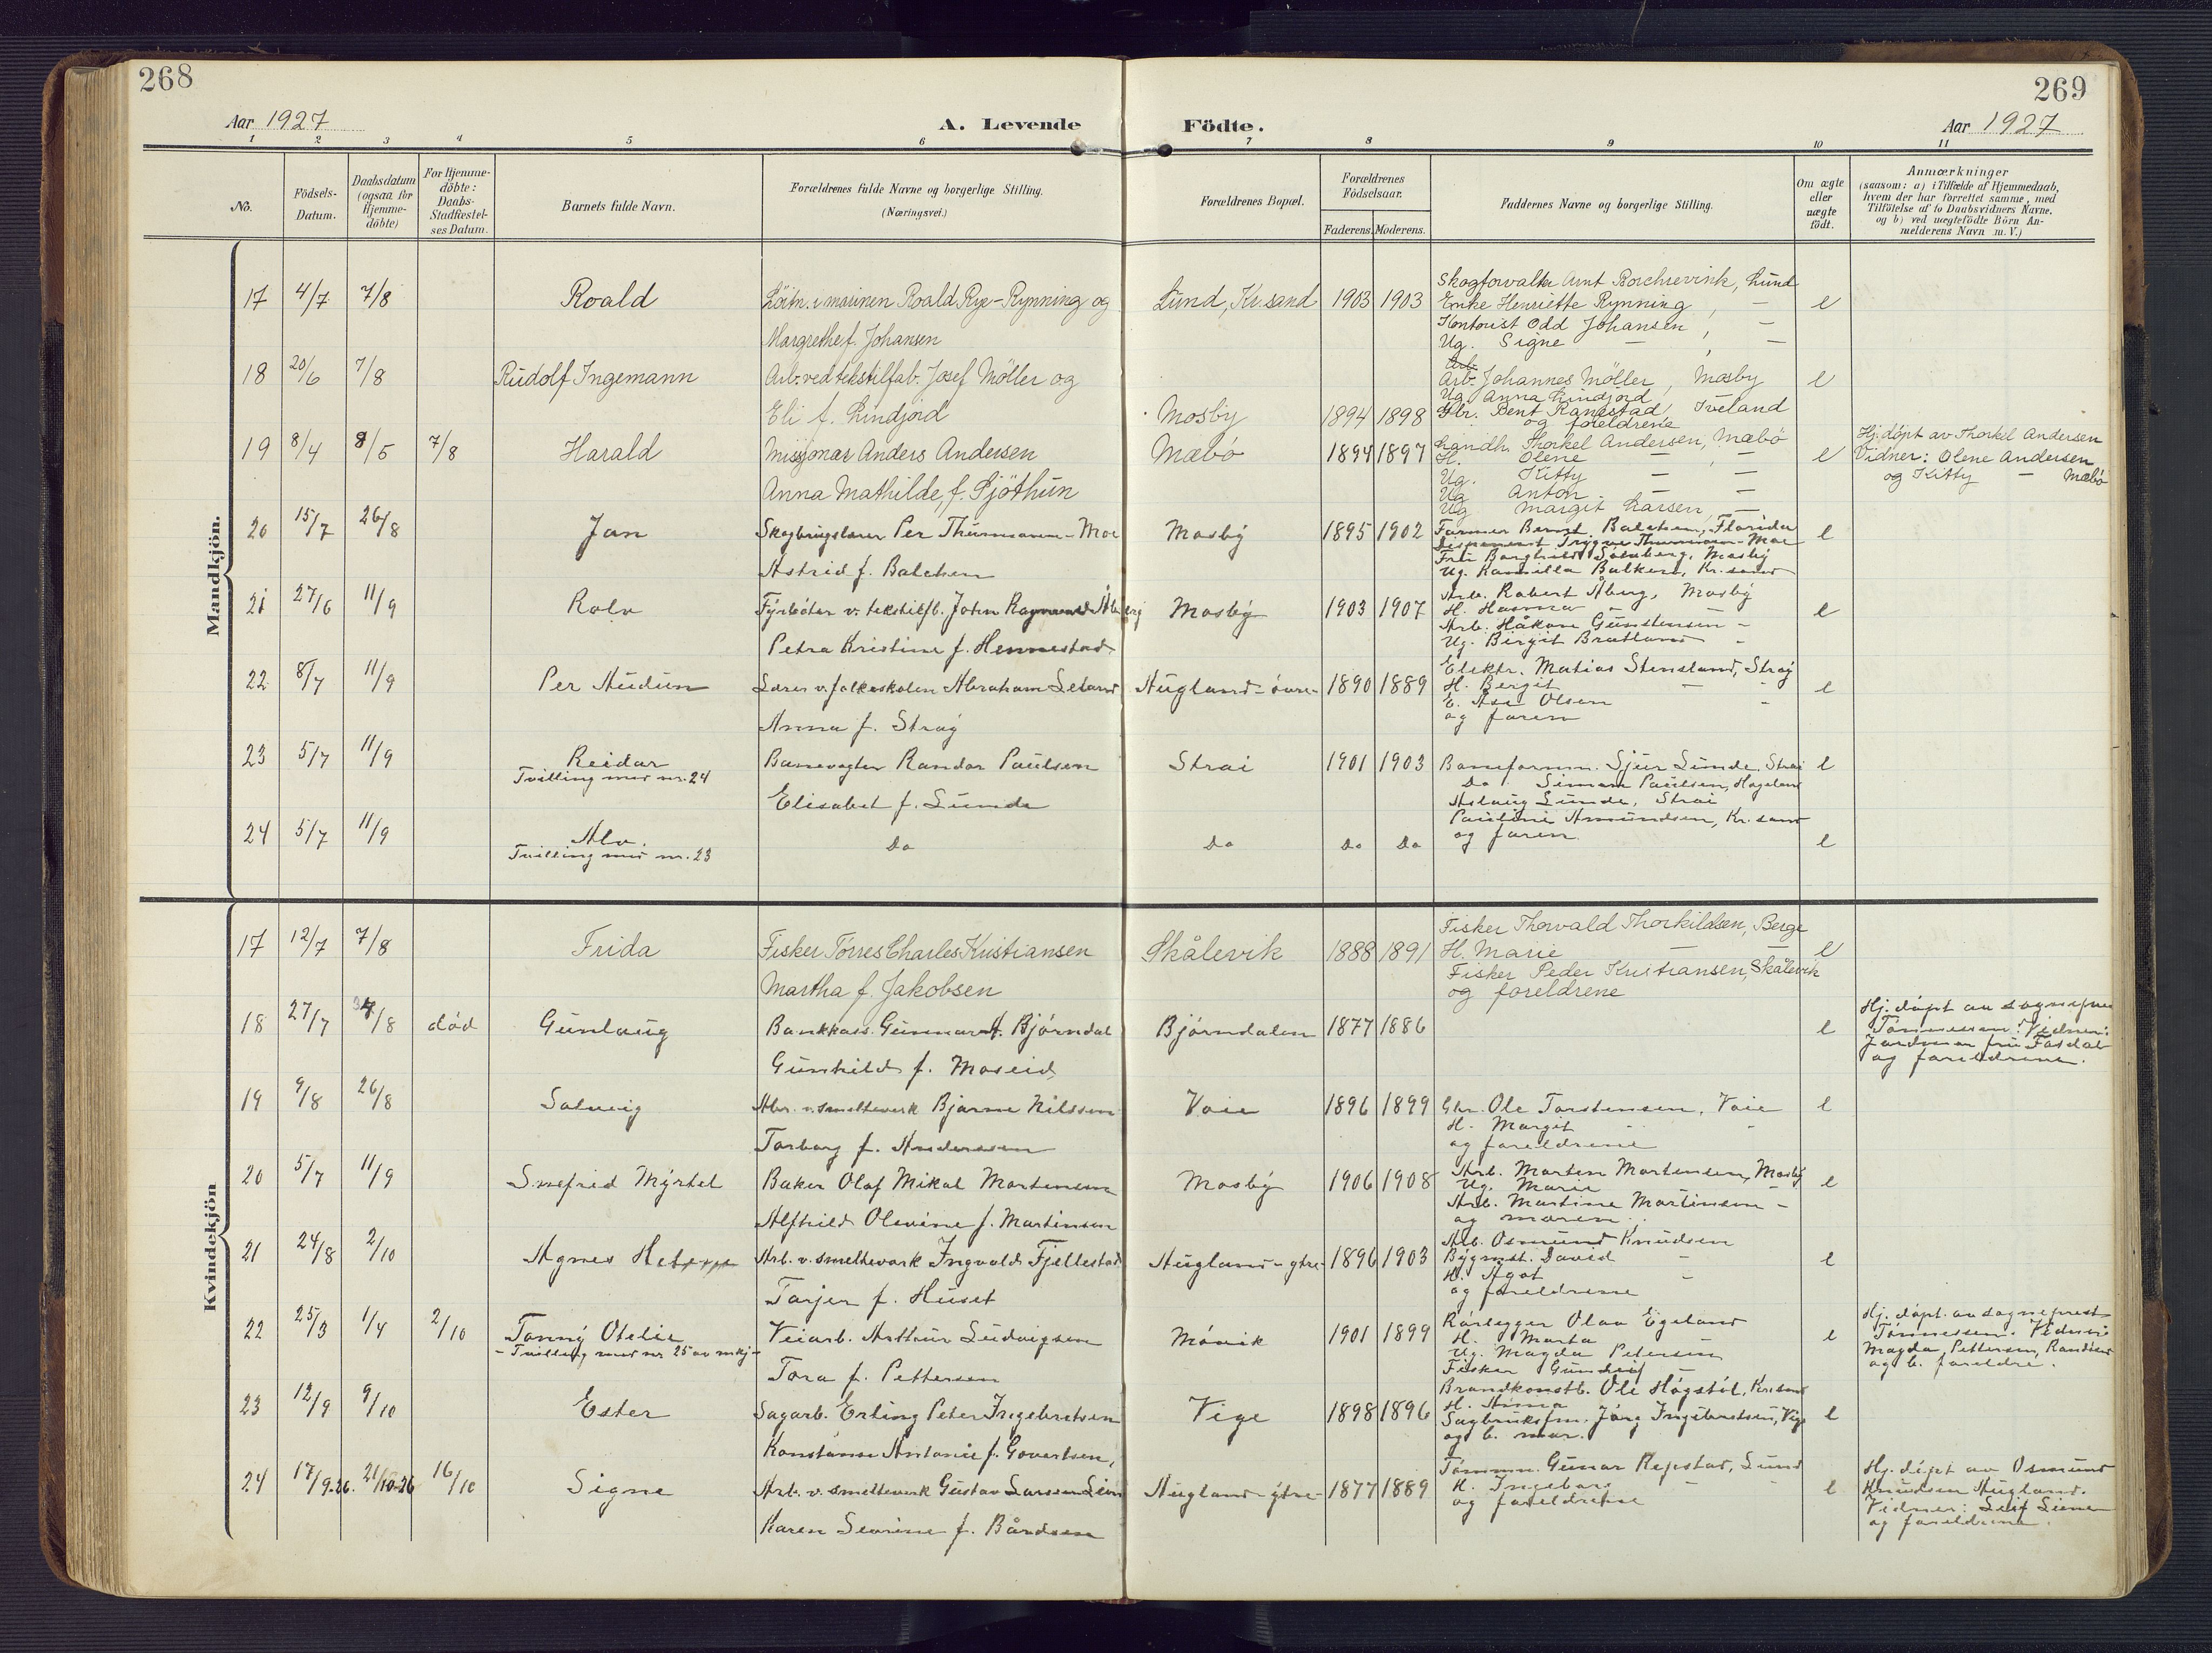 268
269
Aar 1927
A. Levende
Födte.
Aar 1927
1 2 3 4 5 6 7 8 9 10 11
No.
Födsels-
Datum.
Daabsdatum
(ogsaa for
Hjemme-
döbte)
For Hjemme-
döbte:
Daabs-
Stadfæstel-
ses Datum.
Barnets fulde Navn.
Forældrenes fulde Navne og borgerlige Stilling.
(Næringsvei.)
Forældrenes Bopæl.
Forældrenes
Födselsaar.
Faderens. Moderens.
Faddernes Navne og borgerlige Stilling.
Om ægte
eller
uægte
födt.
Anmærkninger
(saasom: a) i Tilfælde af Hjemmedaab,
hvem der har forrettet samme, med
Tilföielse af to Daabsvidners Navne,
og b) ved uægtefödte Börn An-
melderens Navn m. V.)
Mandkjön.
17 4/7 7/8 Roald Löitn. i marinen Roald Rye-Rynning og Lund, Kr.sand 1903 1903 e
Margrethe f. Johansen
Skogforvalter Arnt Borchrevink, Lund
Enke Henriette Rynning, —
Kontorist Odd Johansen, —
Ug. Signe — , —
18 20/6 7/8 Rudolf Ingemann Arb. ved tekstilfab. Josef Möller og e
Eli f. Lindjord Mosby 1894 1898
Arb.
Arb. Johannes Möller, Mosby
Ug. Anna Lindjord
Gbr. Bent Ranestad, Iveland
og foreldrene
19 8/4 8/5 7/8 Harald Missjonær Anders Andersen Mæbö 1894 1897 e
Anna Mathilde, f. Sjöthun
Landh. Thorkel Andersen, Mæbö
H. Olene — , —
Ug. Kitty — —
Ug Anton — —
Ug Margit Larsen, —
Hj.döpt av Thorkel Andersen
Vidner: Olene Andersen
og Kitty — Mæbö
20 15/7 26/8 Jan Skogbrugslærer Per Thurmann-Moe Mosby 1895 1902 e
Astrid f. Balchen
Farmer Bernt Balchen, Florida
Disponent Trygve Thurmann-Moe
Fru Borghild Solnberg, Mosby
Ug. Kamilla Balken, Kr.sand
21 27/6 11/9 Rolv Fyrböter v. tekstilfb. John Ragnvald Åberg Mosby 1903 1907 e
Petra Kristine f. Hennestad
Arb. Robert Åberg, Mosby
H. Hanna -
Arb. Håkon Gunstensen -
Ug. Birgit Bratland -
22 8/7 11/9 Per Audun Lærer v. folkeskolen Abraham Seland Augland-övre- 1890 1889 e
Anna f. Stray
Elektr. Matias Stensland, Stray
H. Bergit — -
E. Ase Olsen -
og faren
23 5/7 11/9 Reidar Banevogter Randor Paulsen Strai 1901 1903 e
Tvilling med nr. 24
Elisabet f. Sunde
Baneformn. Sjur Sunde, Strai
Do Simon Paulsen, Hageland
Aslaug Sunde, Strai
Pauline Amundsen, Kr.sand
og faren.
24 5/7 11/9 Alv. Do Do Do Do e
Tvilling med nr. 23
Kvindekjön
17 12/7 7/8 Frida Fisker Törres Charles Kristiansen Skålevik 1888 1891 e
Martha f. Jakobsen
Fisker Thorvald Thorkildsen, Berge
H. Marie — —
Fisker Peder Kristiansen, Skålevik
og foreldrene
18 27/7 /8 död Gunlaug Bankkass. Gunnar A. Björndal Björndalen 1877 1886 e
Gunhild f. Moseid
Hj. döpt av sogneprest
Tönnessen. Vidner:
Jordmor fru Fosdal
og foreldrene.
19 9/8 26/8 Solveig Arb. v. smelteverk Bjarne Nilssen Voie 1896 1899 e
Torborg f. Anderssen
Gbr. Ole Torstensen, Voie
H. Margit - -
og foreldrene
20 5/7 11/9 Snefrid Myrtel Baker Olaf Mikal Martinsen Mosby 1906 1908 e
Alfhild Olevine f. Martinsen
Arb. Martin Martensen, Mosby
Ug. Marie -
Arb. Martine Martinsen -
og moren.
21 24/8 2/10 Agnes Arb. v. smelteverk Ingvald Fjellestad Augland-ytre- 1896 1903 e
Torjer f. Huset
Arb. Osmund Knudsen
Bygmst. David -
H. Agot -
og foreldrene
22 25/3 1/4 2/10 Tonny Otelie Veiarb. Arthur Ludvigsen Mövik 1901 1899 e
- Tvilling med nr 25 av mkj -
Tora f. Pettersen
Rörlegger Olav Egeland
H. Marta —
Ug. Magda Petersen
Fisker Gunleif —
Hj. döpt av sogneprest
Tönnessen. Vidner:
Magda Pettersen, Randöen
og b. foreldre.
23 12/9 9/10 Ester Sagarb. Erling Peter Ingebretsen Vige 1898 1896 e
Konstanse Antonie f. Govertsen,
Brandkonstb. Ole Högstöl, Kr.sand
H. Anna -
Sagbruksfm. Jörg Ingebretsen, Vige
og b. mor.
24 17/9-26. 21/10-26 16/10 Signe Arb. v. smelteverk Gustav Larsen Augland-ytre- 1877 1889 e
Karen Severine f. Bårdsen
Tömmn. Gunar Repstad, Lund
H. Ingeborg - -
og foreldrene
Hj. döpt av Osmund
Knudsen Augland.
Vidner: Leif Liene
og foreldrene.